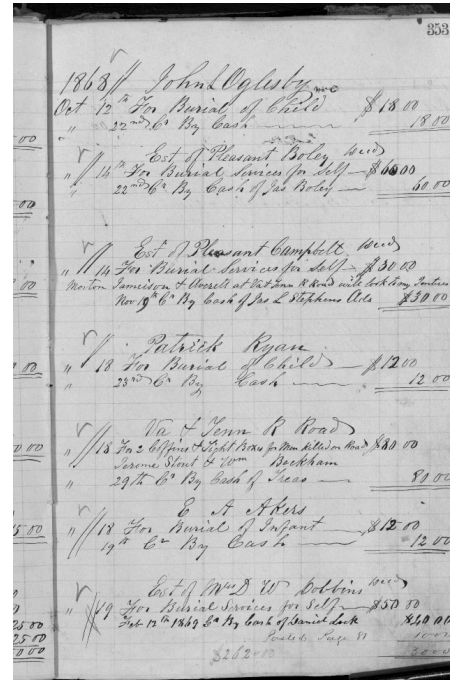 353
1868 // John L Oglesby
Oct 12th For Burial of Child $18 00
" 22nd Cr By Cash 18 00
Est of Pleasant Boley decd
" 14th For Burial Services for Self $60 00
" 22nd Cr By Cash of Jas Boley 60 00
Est of Pleasant Campbell decd
" 14 For Burial Services for Self $30 00
Morton Jameison & Averett at Va & Tenn R Road will look to my Interest
Nov 19th Cr By Cash of Jas L Stephens Adr $30.00
Patrick Ryan
" 18 For Burial of Child $12 00
" 23rd Cr By Cash 12 00
Va & Tenn R Road
" 18 For 2 Coffins & Tight Boxes for Men killed on Road $80 00
Jerome Stout & Wm Beckham
" 29th Cr By Cash of Treas 80 00
E A Akers
" 18 For Burial of Infant $12 00
19th Cr By Cash 12 00
Est of Mrs D W Dobbins decd
" 19 For Burial Services for Self $50 00
Feb 12th 1869 Cr By Cash of Daniel Lock
Posted Page 81
$262.00
00
00
00
00
00
15 00
25 00
25 00
0 00